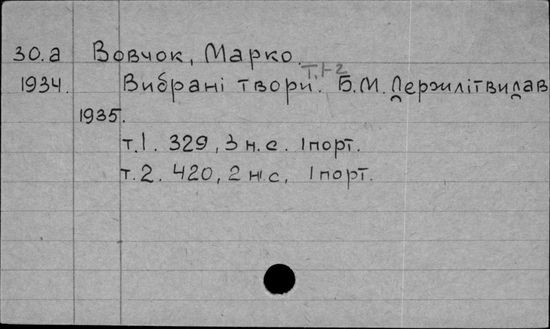 30.а Вовчок, Марко.
т. 1-2
1934. Вибрані твори. Б.М. Держлітвидав
1935.
т.1. 329, 3 н.с. 1 порт.
т.2. 420, 2 н.с. 1 порт.